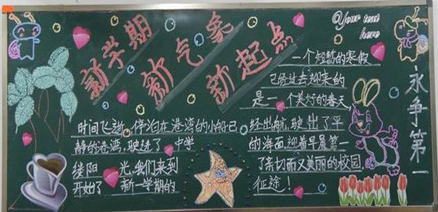 新学期
新气象
新起点
Your text
here
一个短暂的寒假
已经过去迎来的
是一个美好的春天
永争第一
时间飞逝,停泊在港湾的小船已
经出航,驶出了平
静的港湾,驶进了
的海面迎着早晨第一
缕阳光,我们来到
了亲切而又美丽的校园
开始了新一学期的
征途!